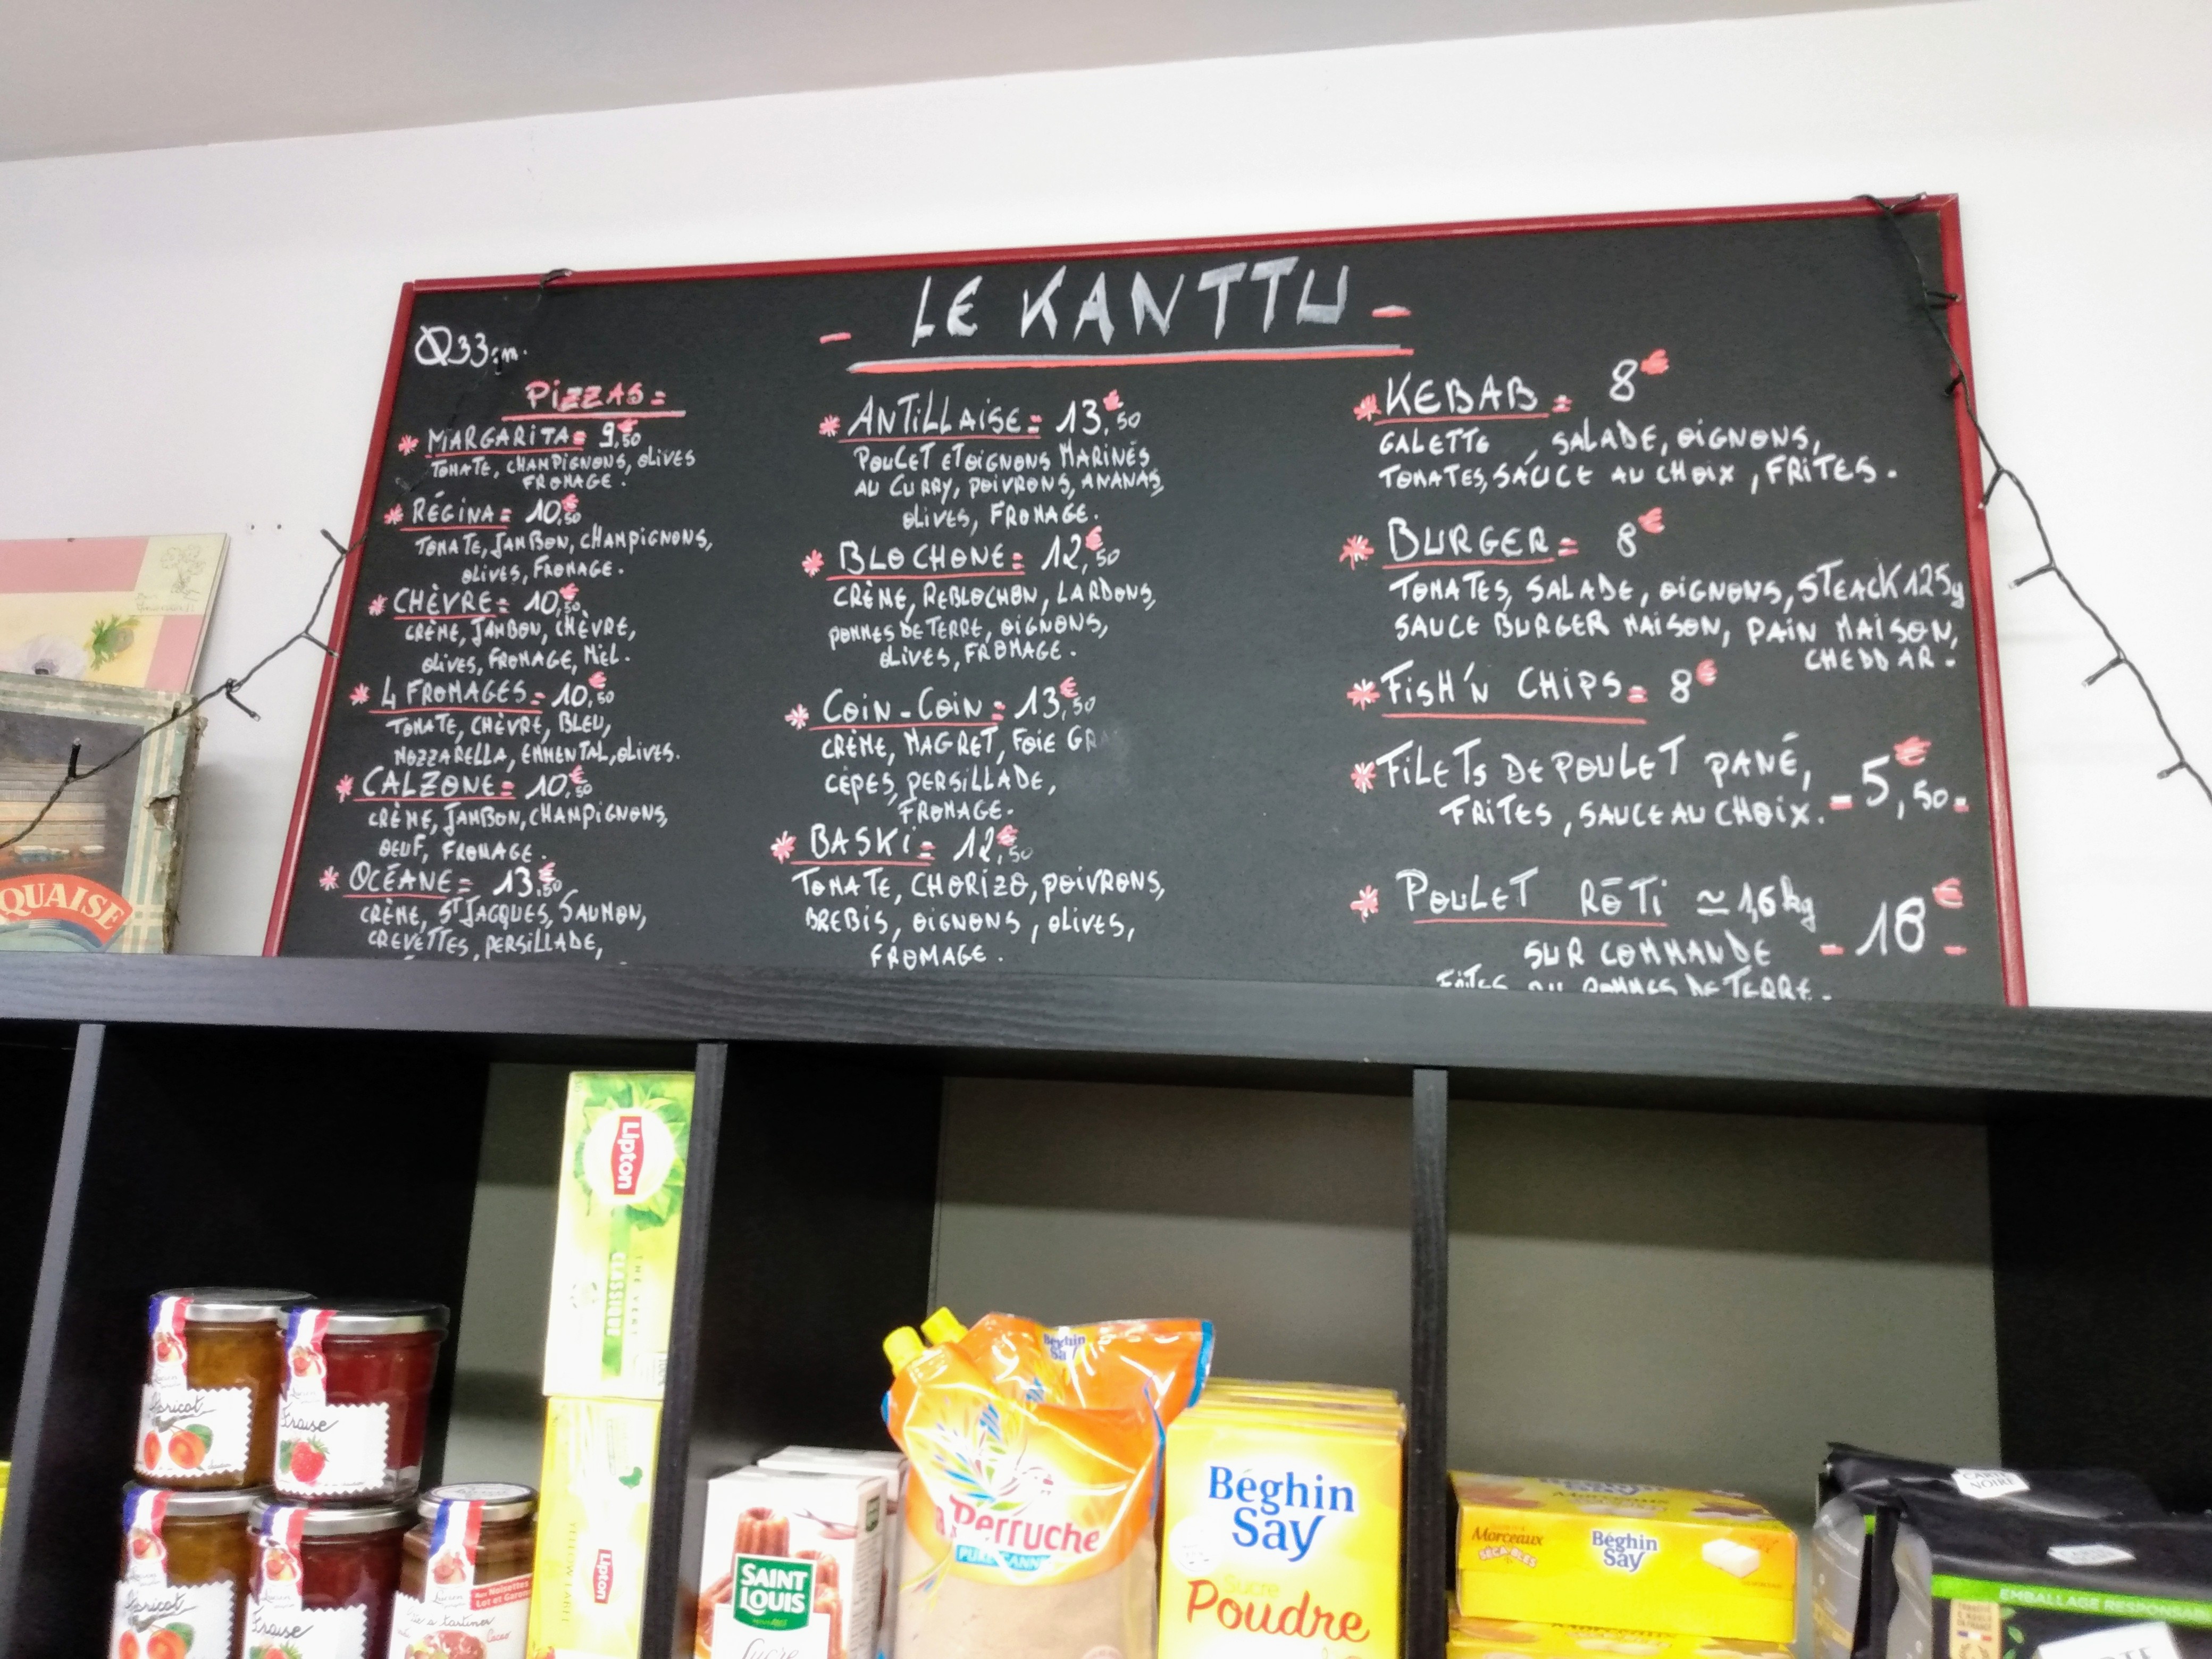 - LE KANTTU -
Ø33cm.
PIZZAS=
* MARGARITA= 9,50€
TOMATE, CHAMPIGNONS, OLIVES
FROMAGE.
* RÉGINA= 10,50€
TOMATE, JAMBON, CHAMPIGNONS,
OLIVES, FROMAGE.
* CHÈVRE= 10,50€
CRÈME, JAMBON, CHÈVRE,
OLIVES, FROMAGE, MIEL.
* 4 FROMAGES= 10,50€
TOMATE, CHÈVRE, BLEU,
MOZZARELLA, EMMENTAL, OLIVES.
* CALZONE= 10,50€
CRÈME, JAMBON, CHAMPIGNONS,
OEUF, FROMAGE.
* OCÉANE= 13,50€
CRÈME, ST JACQUES, SAUMON,
CREVETTES, PERSILLADE,
* ANTILLAISE= 13,50€
POULET ET OIGNONS MARINÉS
AU CURRY, POIVRONS, ANANAS,
OLIVES, FROMAGE.
* BLOCHONE= 12,50€
CRÈME, REBLOCHON, LARDONS,
POMMES DE TERRE, OIGNONS,
OLIVES, FROMAGE.
* COIN-COIN= 13,50€
CRÈME, MAGRET, FOIE GRA
CÈPES, PERSILLADE,
FROMAGE.
* BASKI= 12,50€
TOMATE, CHORIZO, POIVRONS,
BREBIS, OIGNONS, OLIVES,
FROMAGE.
* KEBAB= 8€
GALETTE, SALADE, OIGNONS,
TOMATES, SAUCE AU CHOIX, FRITES.
* BURGER= 8€
TOMATES, SALADE, OIGNONS, STEACK 125g
SAUCE BURGER MAISON, PAIN MAISON,
CHEDDAR.
* FISH'N CHIPS= 8€
* FILETS DE POULET PANÉ,
FRITES, SAUCE AU CHOIX. - 5,50€ -
* POULET RÔTI ≃ 1,6kg
SUR COMMANDE - 18€ -
OU POMMES DE TERRE.
QUAISE
Lipton
THE VERT
CLASSIQUE
YELLOW LABEL
Lipton
Abricot
Fraise
Abricot
Fraise
Aux Noisettes
Lot et Garonne
à tartiner
Cacao
SAINT
LOUIS
Sucre
Béghin
Say
La Perruche
PURE CANNE
Béghin
Say
Sucre
Poudre
Morceaux
SÉCABLES
Béghin
Say
CARTE
NOIRE
EMBALLAGE RESPONSABLE